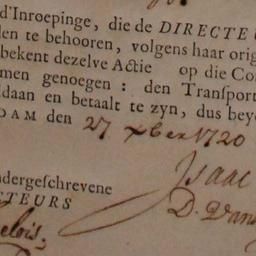 d'Inroepinge, die de DIRECTE
den te behooren, volgens haar orig
bekent dezelve Actie op die Co
men genoegen: den Transport
daan en betaalt te zyn, dus bey
DAM den 27 xber 1720
Isaac
ndergeschrevene
CTEURS
D. van